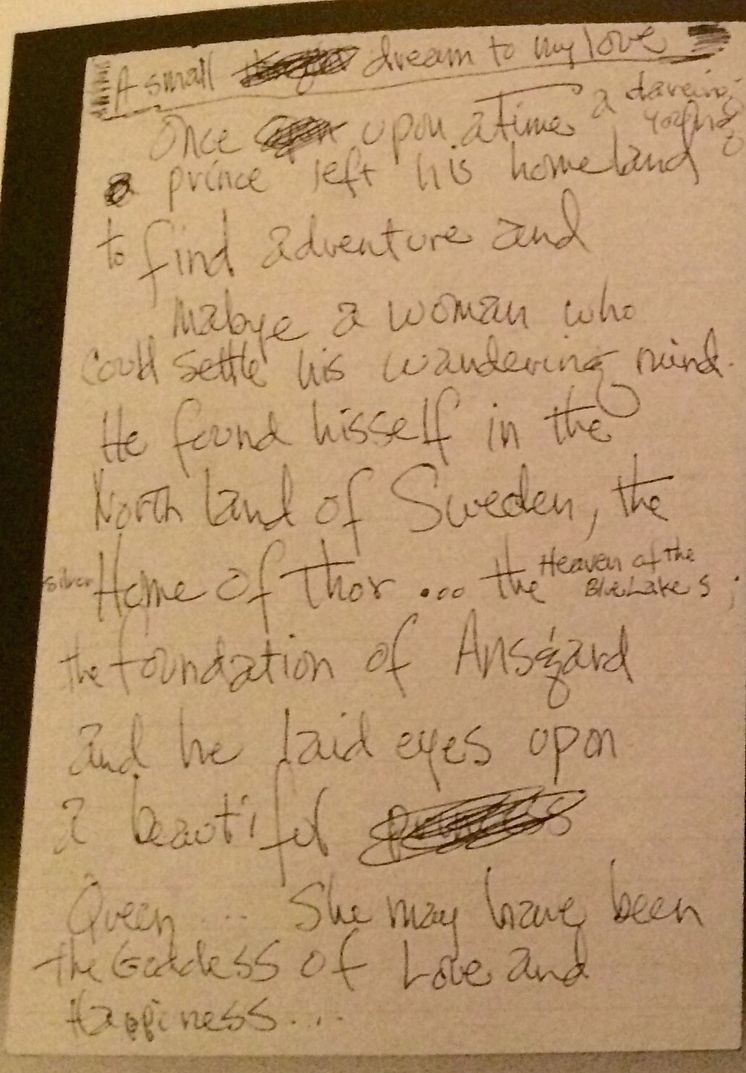 A small dream to my love
Once upon a time a dareing young
a prince left his homeland
to find adventure and
mabye a woman who
could settle his wandering mind.
He found hisself in the
North land of Sweden, the
silver Home of Thor ... the Heaven of the Blue Lakes;
the foundation of Ansgard
and he laid eyes upon
a beautiful
Queen ... She may have been
the Goddess of Love and
Happiness...